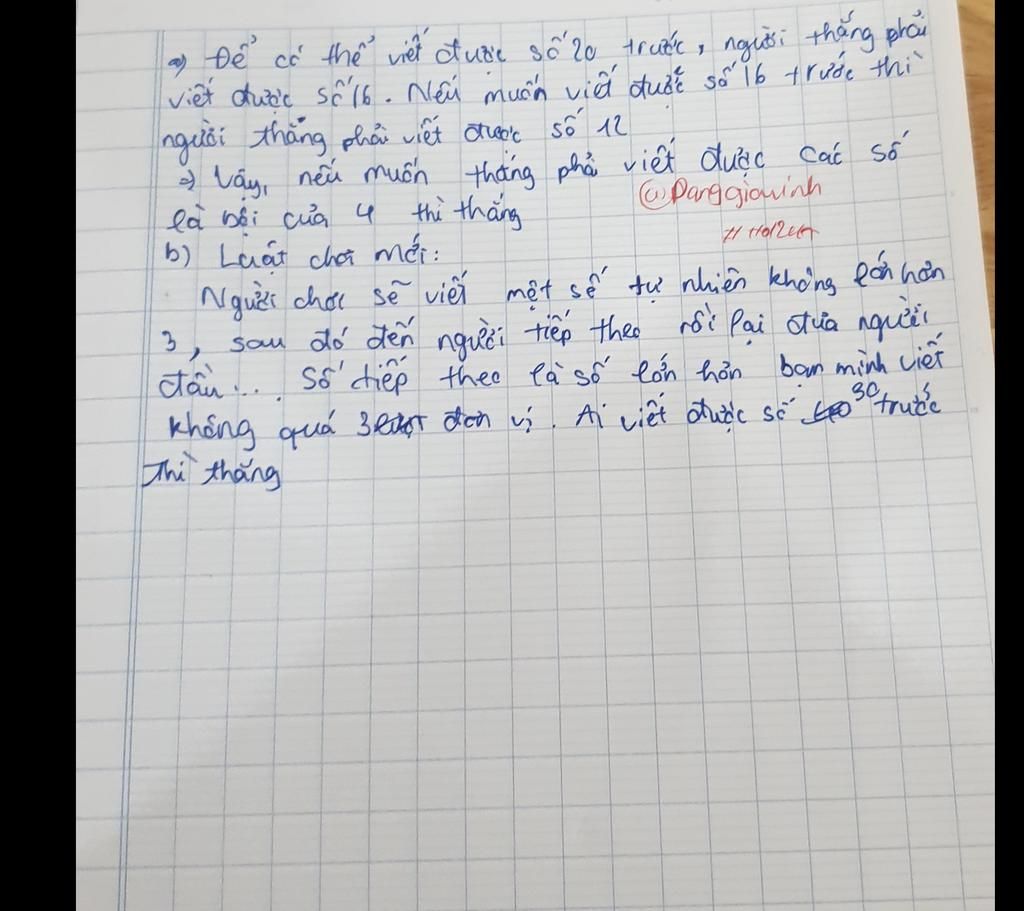 => Để có thể viết được số 20 trước, người thắng phải
viết được số 16. Nếu muốn viết được số 16 trước thì
người thắng phải viết được số 12
=> Vậy, nếu muốn thắng phải viết được các số
là bội của 4 thì thắng
@Danggiavinh
b) Luật chơi mới:
Người chơi sẽ viết một số tự nhiên không lớn hơn
3, sau đó đến người tiếp theo rồi lại đưa người
đầu... Số tiếp theo là số lớn hơn bạn mình viết
không quá 3 đơn vị. Ai viết được số 30 trước
thì thắng